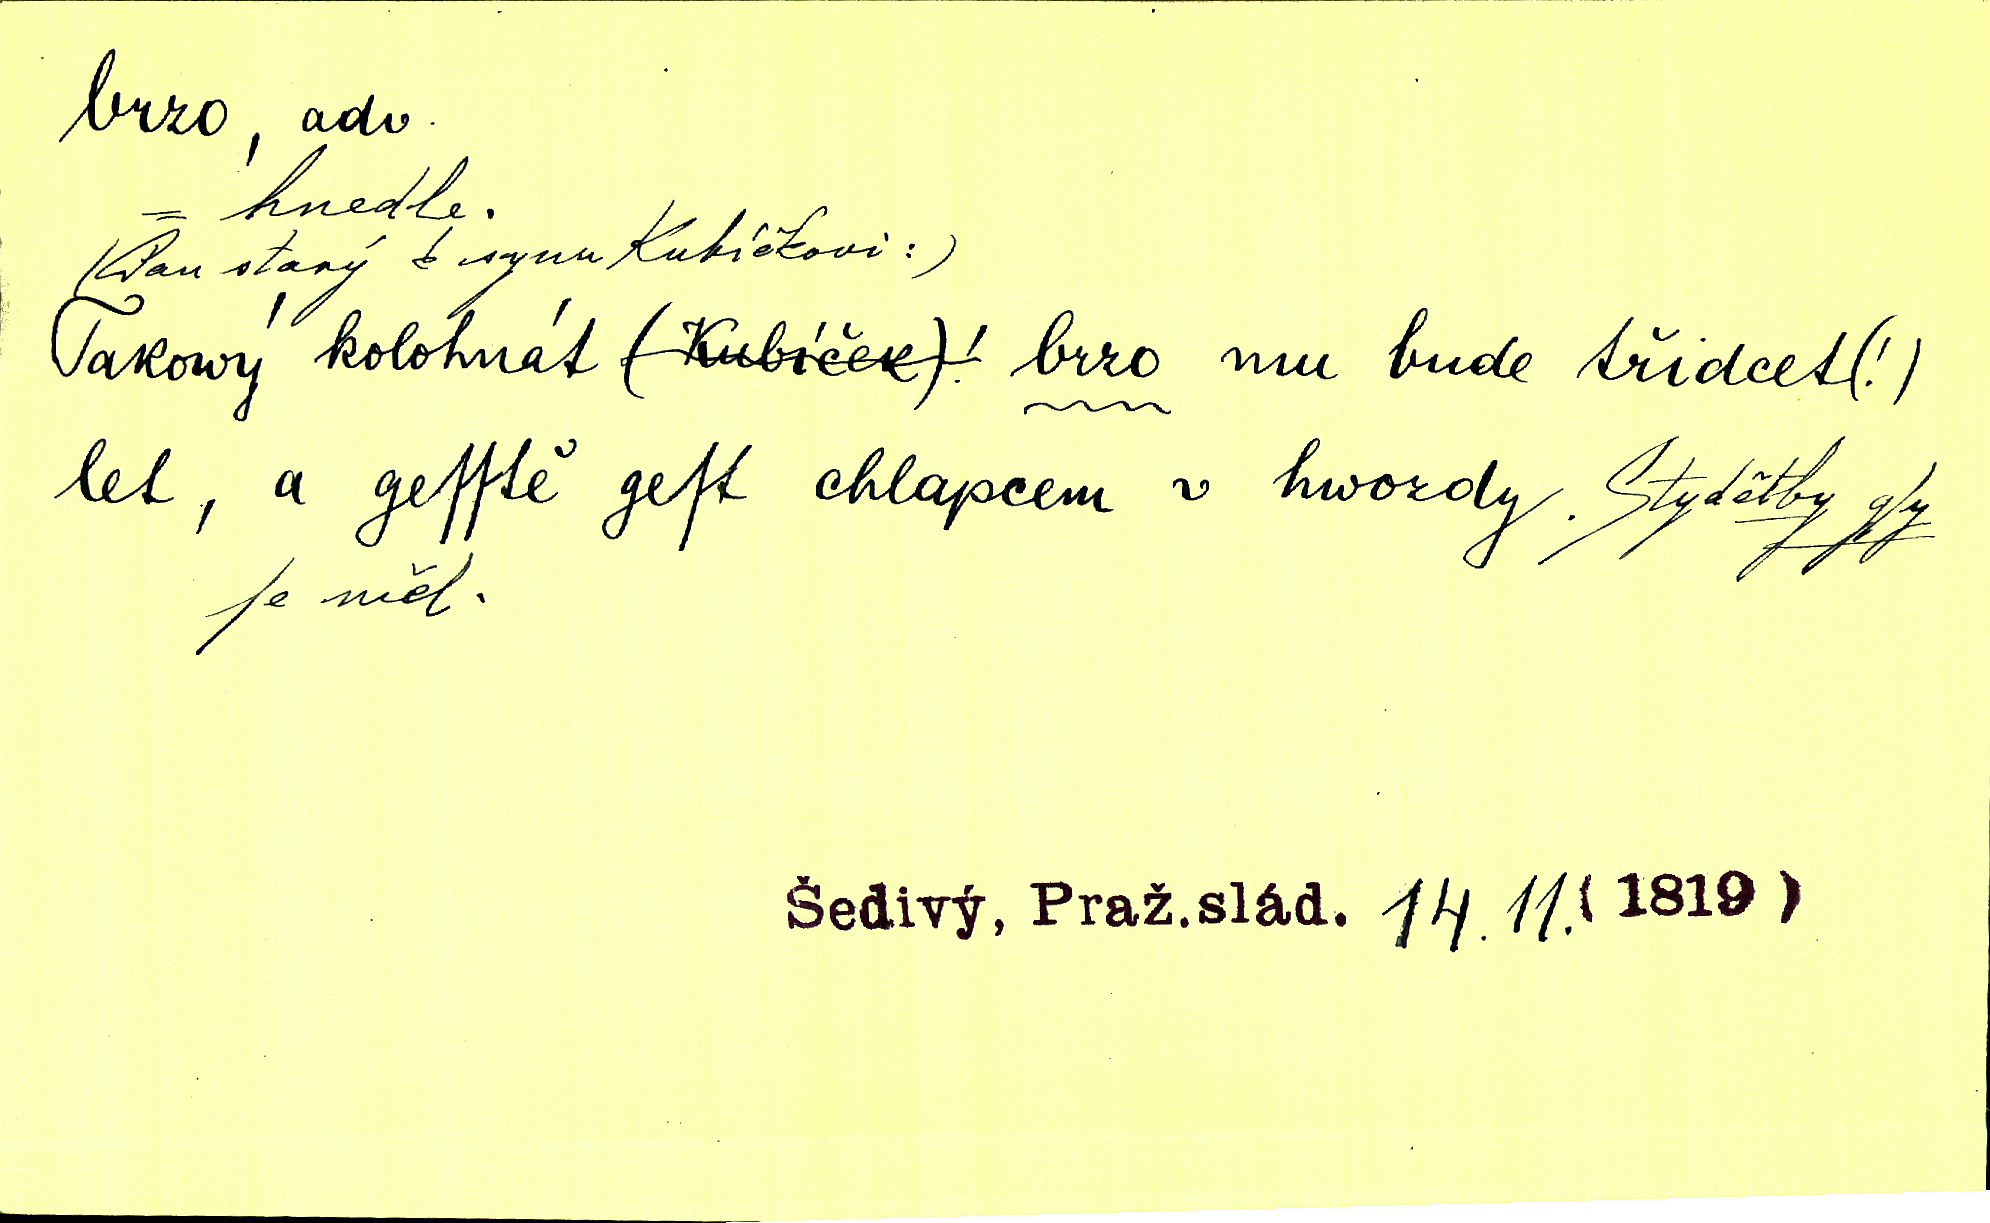 brzo, adv.
= hnedle.
(Pan starý k synu Kubíčkovi:)
Takowý kolohnát (Kubíček)! brzo mu bude třidcet(!)
let, a geſſtě geſt chlapcem v hwozdy. Stydětby gſy
ſe měl.
Šedivý, Praž.slád. 14. 11. (1819)